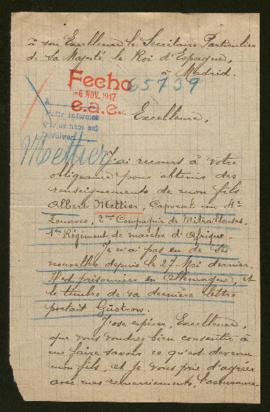 à son Excellence le Secrétaire Particulier
de Sa Majesté le Roi d'Espagne,
à Madrid.
Fecha
65739
-6 NOV. 1917
e.a.c.
Excellence,
Mettier
J'ai recours à votre
obligeance pour obtenir des
renseignements de mon fils
Albert Mettier, Caporal au 4e
Zouaves, 2me Compagnie de Mitrailleuses,
1er Régiment de marche d'Afrique.
Je n'ai pas eu de ses
nouvelles depuis le 27 Mai dernier.
Il est prisonnier en Allemagne, et
le timbre de sa dernière lettre
portait Güstrow.
J'ose espérer, Excellence,
que vous voudrez bien consentir à
me faire savoir ce qu'est devenu
mon fils, et je vous prie d'agréer
avec mes remerciements l'assurance